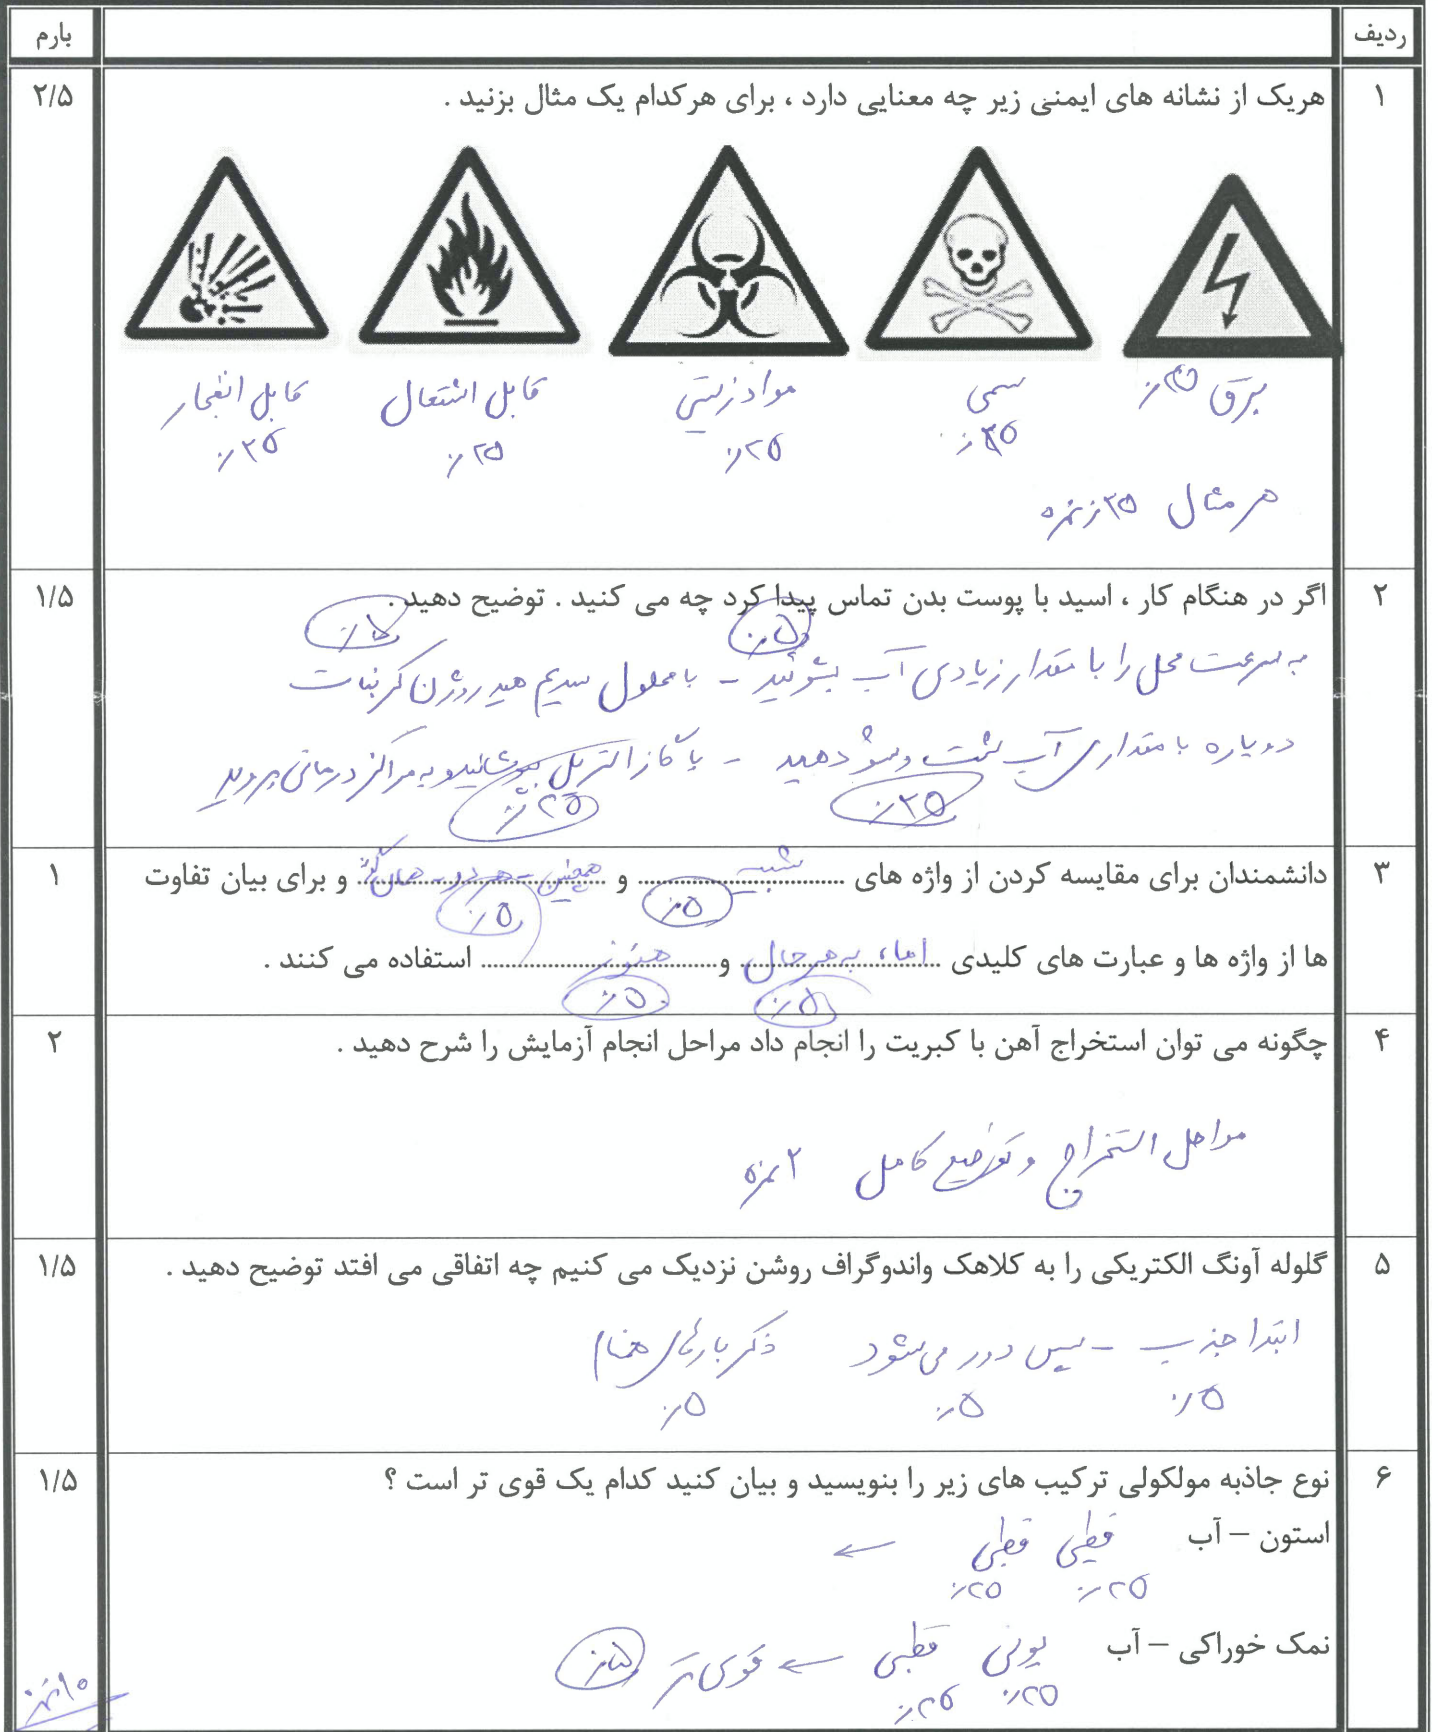 ردیف بارم
۱ هریک از نشانه های ایمنی زیر چه معنایی دارد ، برای هرکدام یک مثال بزنید . ۲/۵
برق ۲۵٪ سمی مواد زیستی قابل اشتعال قابل انفجار
۲۵٪ ۲۵٪ ۲۵٪ ۲۵٪
هر مثال ۲۵٪ نمره
۲ اگر در هنگام کار ، اسید با پوست بدن تماس پیدا کرد چه می کنید . توضیح دهید . ۱/۵
۵٪
به سرعت محل را با مقدار زیادی آب بشوئید - با محلول سدیم هیدروژن کربنات
دوباره با مقداری آب شست وشو دهید - با گاز استریل بپوشانید و به مراکز درمانی بروید
۲۵٪ ۲۵٪
۳ دانشمندان برای مقایسه کردن از واژه های شبیه و همچنین - هر دو - همان گونه و برای بیان تفاوت ۱
۵٪ ۵٪
ها از واژه ها و عبارت های کلیدی اما، به هر حال و هنوز استفاده می کنند .
۵٪ ۵٪
۴ چگونه می توان استخراج آهن با کبریت را انجام داد مراحل انجام آزمایش را شرح دهید . ۲
مراحل استخراج و توضیح کامل ۲ نمره
۵ گلوله آونگ الکتریکی را به کلاهک واندوگراف روشن نزدیک می کنیم چه اتفاقی می افتد توضیح دهید . ۱/۵
ابتدا جذب - سپس دور می شود ذکر بارهای همنام
۵٪ ۵٪ ۵٪
۶ نوع جاذبه مولکولی ترکیب های زیر را بنویسید و بیان کنید کدام یک قوی تر است ؟ ۱/۵
استون – آب قطبی قطبی ←
۲۵٪ ۲۵٪
نمک خوراکی – آب یونی قطبی ← قوی تر ۵٪
۲۵٪ ۲۵٪
۱۰ نمره